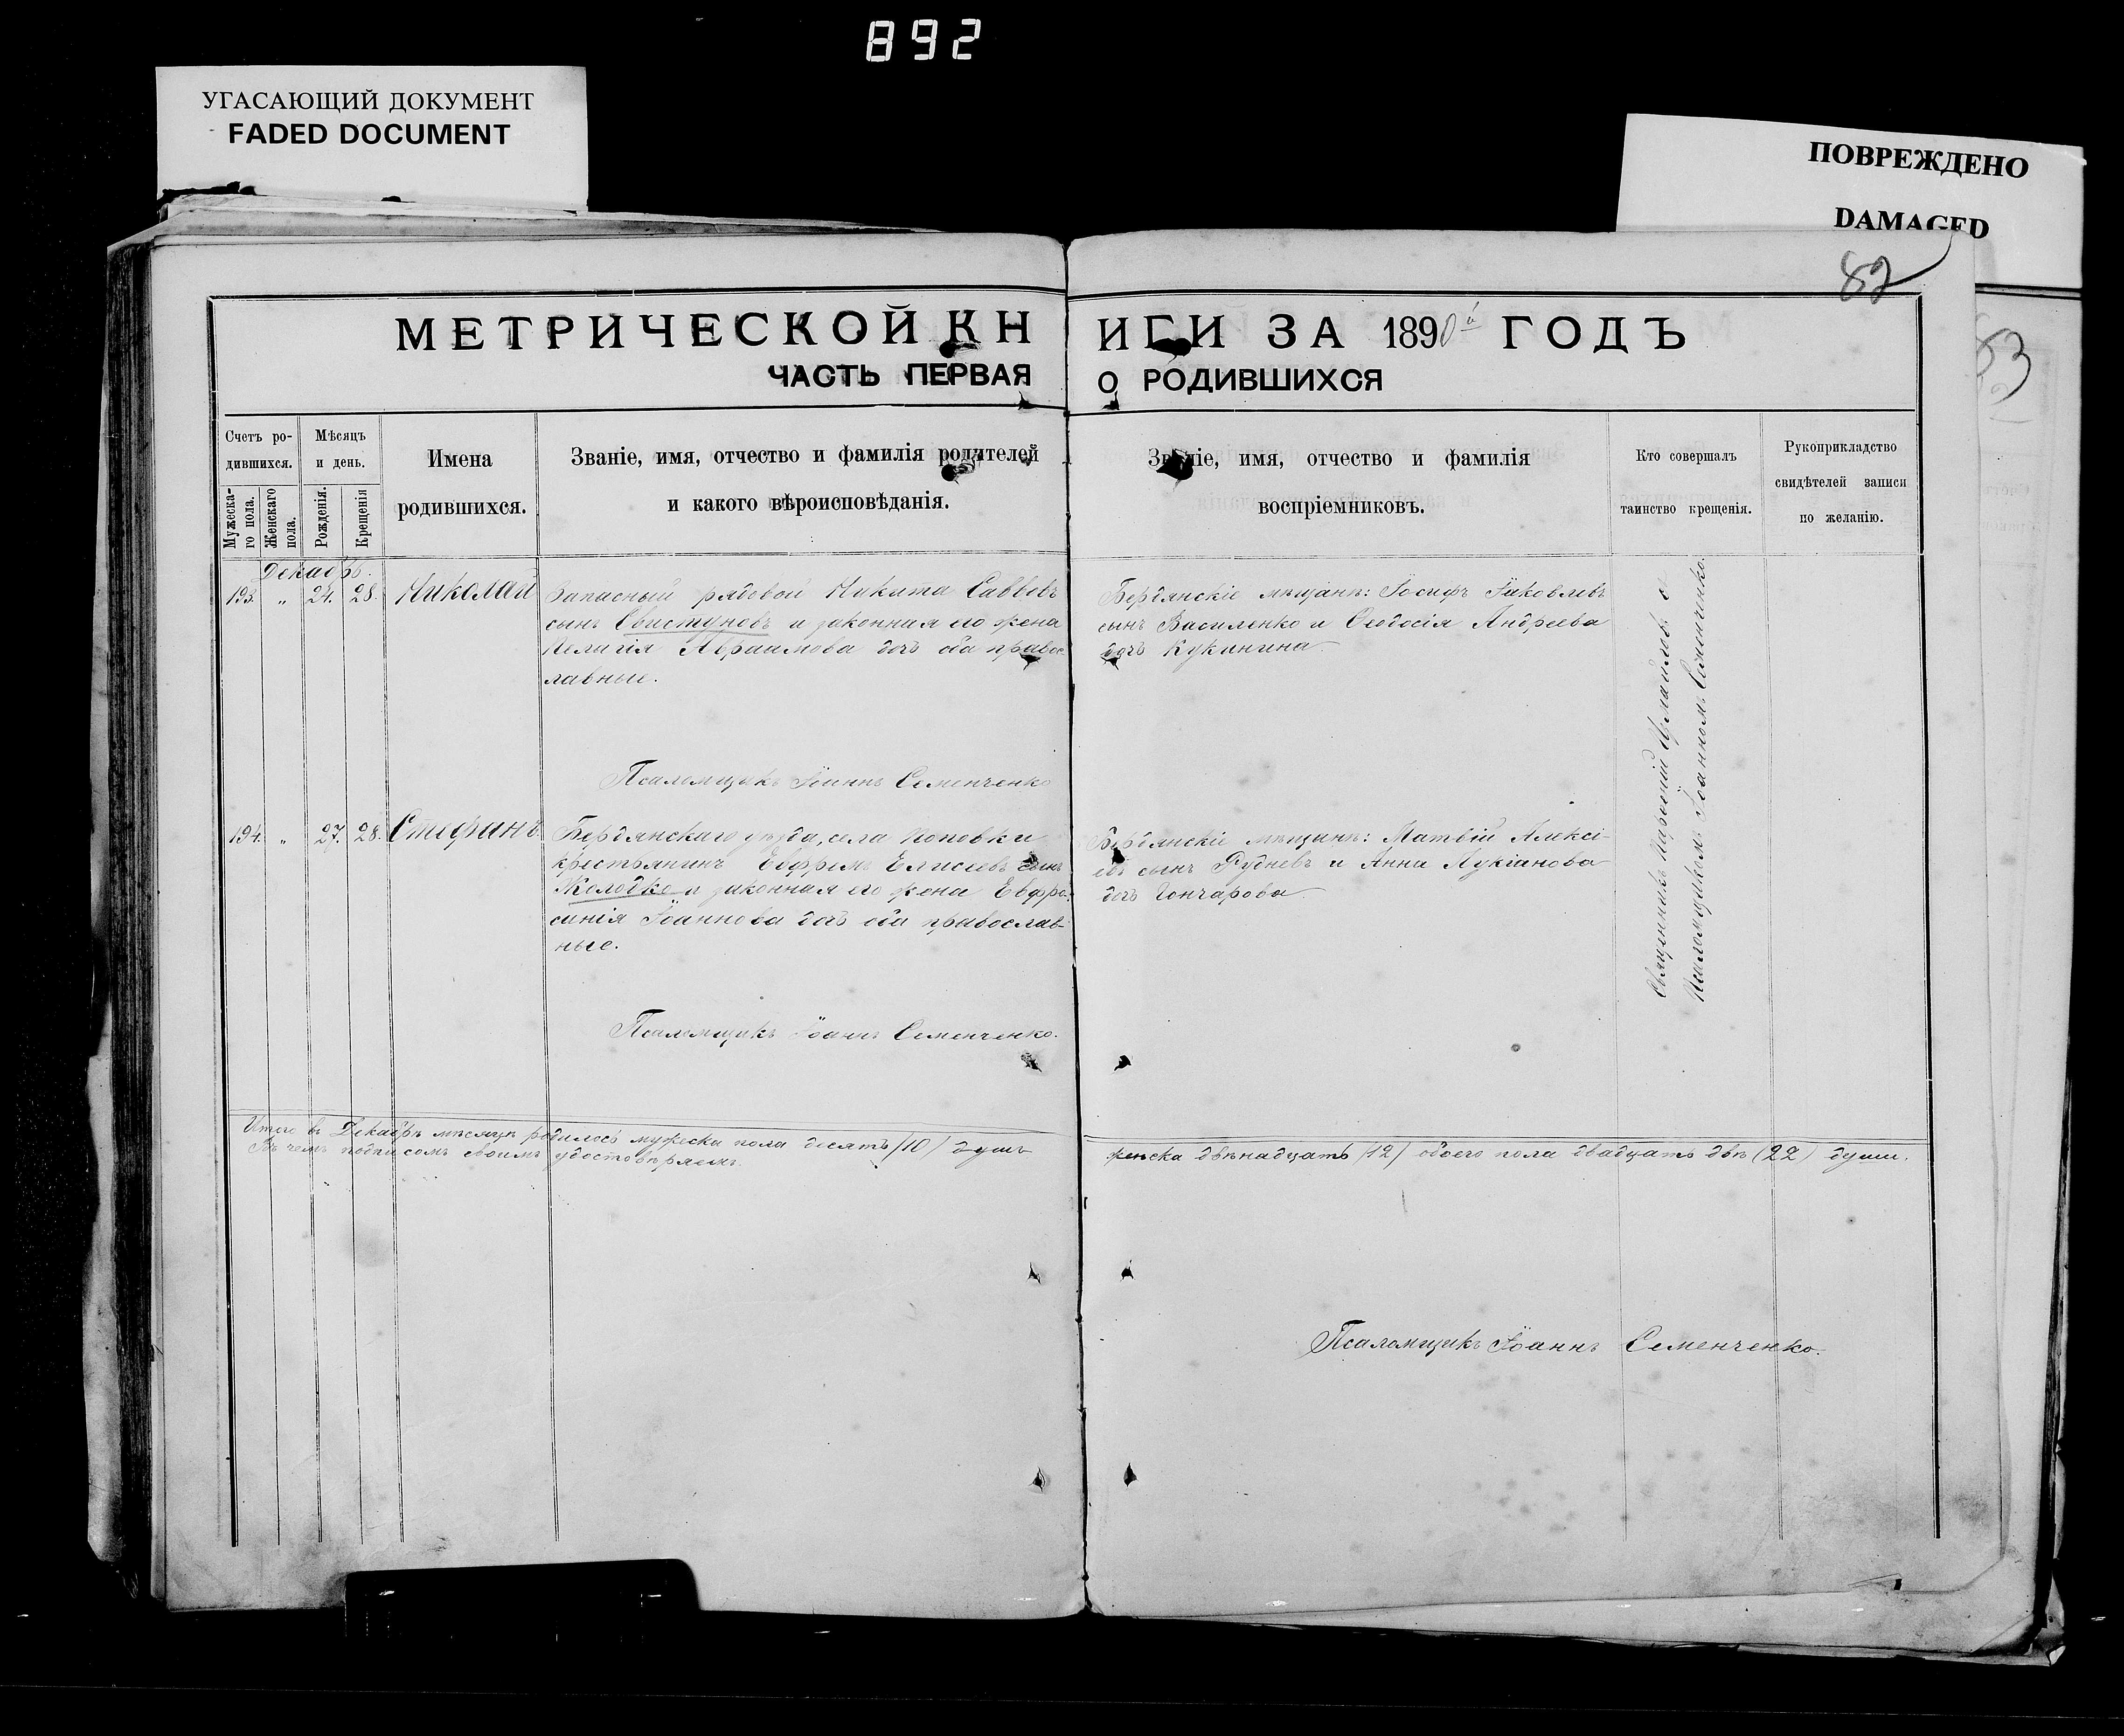 892
УГАСАЮЩИЙ ДОКУМЕНТ
FADED DOCUMENT
ПОВРЕЖДЕНО
DAMAGED
82
53
МЕТРИЧЕСКОЙ КН
ИГИ ЗА 1890й ГОДЪ
ЧАСТЬ ПЕРВАЯ
О РОДИВШИХСЯ
Счетъ ро-
дившихся.
Мужеска-
го пола.
Женскаго
пола.
Мѣсяцъ
и день.
Рожденія.
Крещенія
Имена
родившихся.
Званіе, имя, отчество и фамилія родителей
и какого вѣроисповѣданія.
Званіе, имя, отчество и фамилія
воспріемниковъ.
Кто совершалъ
таинство крещенія.
Рукоприкладство
свидѣтелей записи
по желанію.
Декабрь.
193. „ 24. 28. Николай
Запасный рядовой Никита Саввовъ
сынъ Свистуновъ и законная его жена
Пелагія Авраамова дочь оба право-
славные.
Псаломщикъ Іоаннъ Семенченко
Бердянскіе мѣщане: Іосифъ Іаковлевъ
сынъ Василенко и Ѳеодосія Андреева
дочь Кукинина
194. „ 27. 28. Стефанъ
Бердянскаго уѣзда, села Поповки
крестьянинъ Евфремъ Елисеевъ сынъ
Колодко и законная его жена Евфро-
синія Іоаннова дочь оба православ-
ные.
Псаломщикъ Іоаннъ Семенченко.
Бердянскіе мѣщане: Матвій Алексі-
евъ сынъ Рудневъ и Анна Лукіанова
дочь Гончарова
Священникъ с
Псаломщикомъ Іоанномъ Семенченко.
Итого въ Декабрѣ мѣсяцѣ родилось мужеска пола десять (10) душъ
женска двѣнадцать (12) обоего пола двадцать двѣ (22) души.
Въ чемъ подписомъ своимъ удостовѣряемъ.
Псаломщикъ Іоаннъ Семенченко.